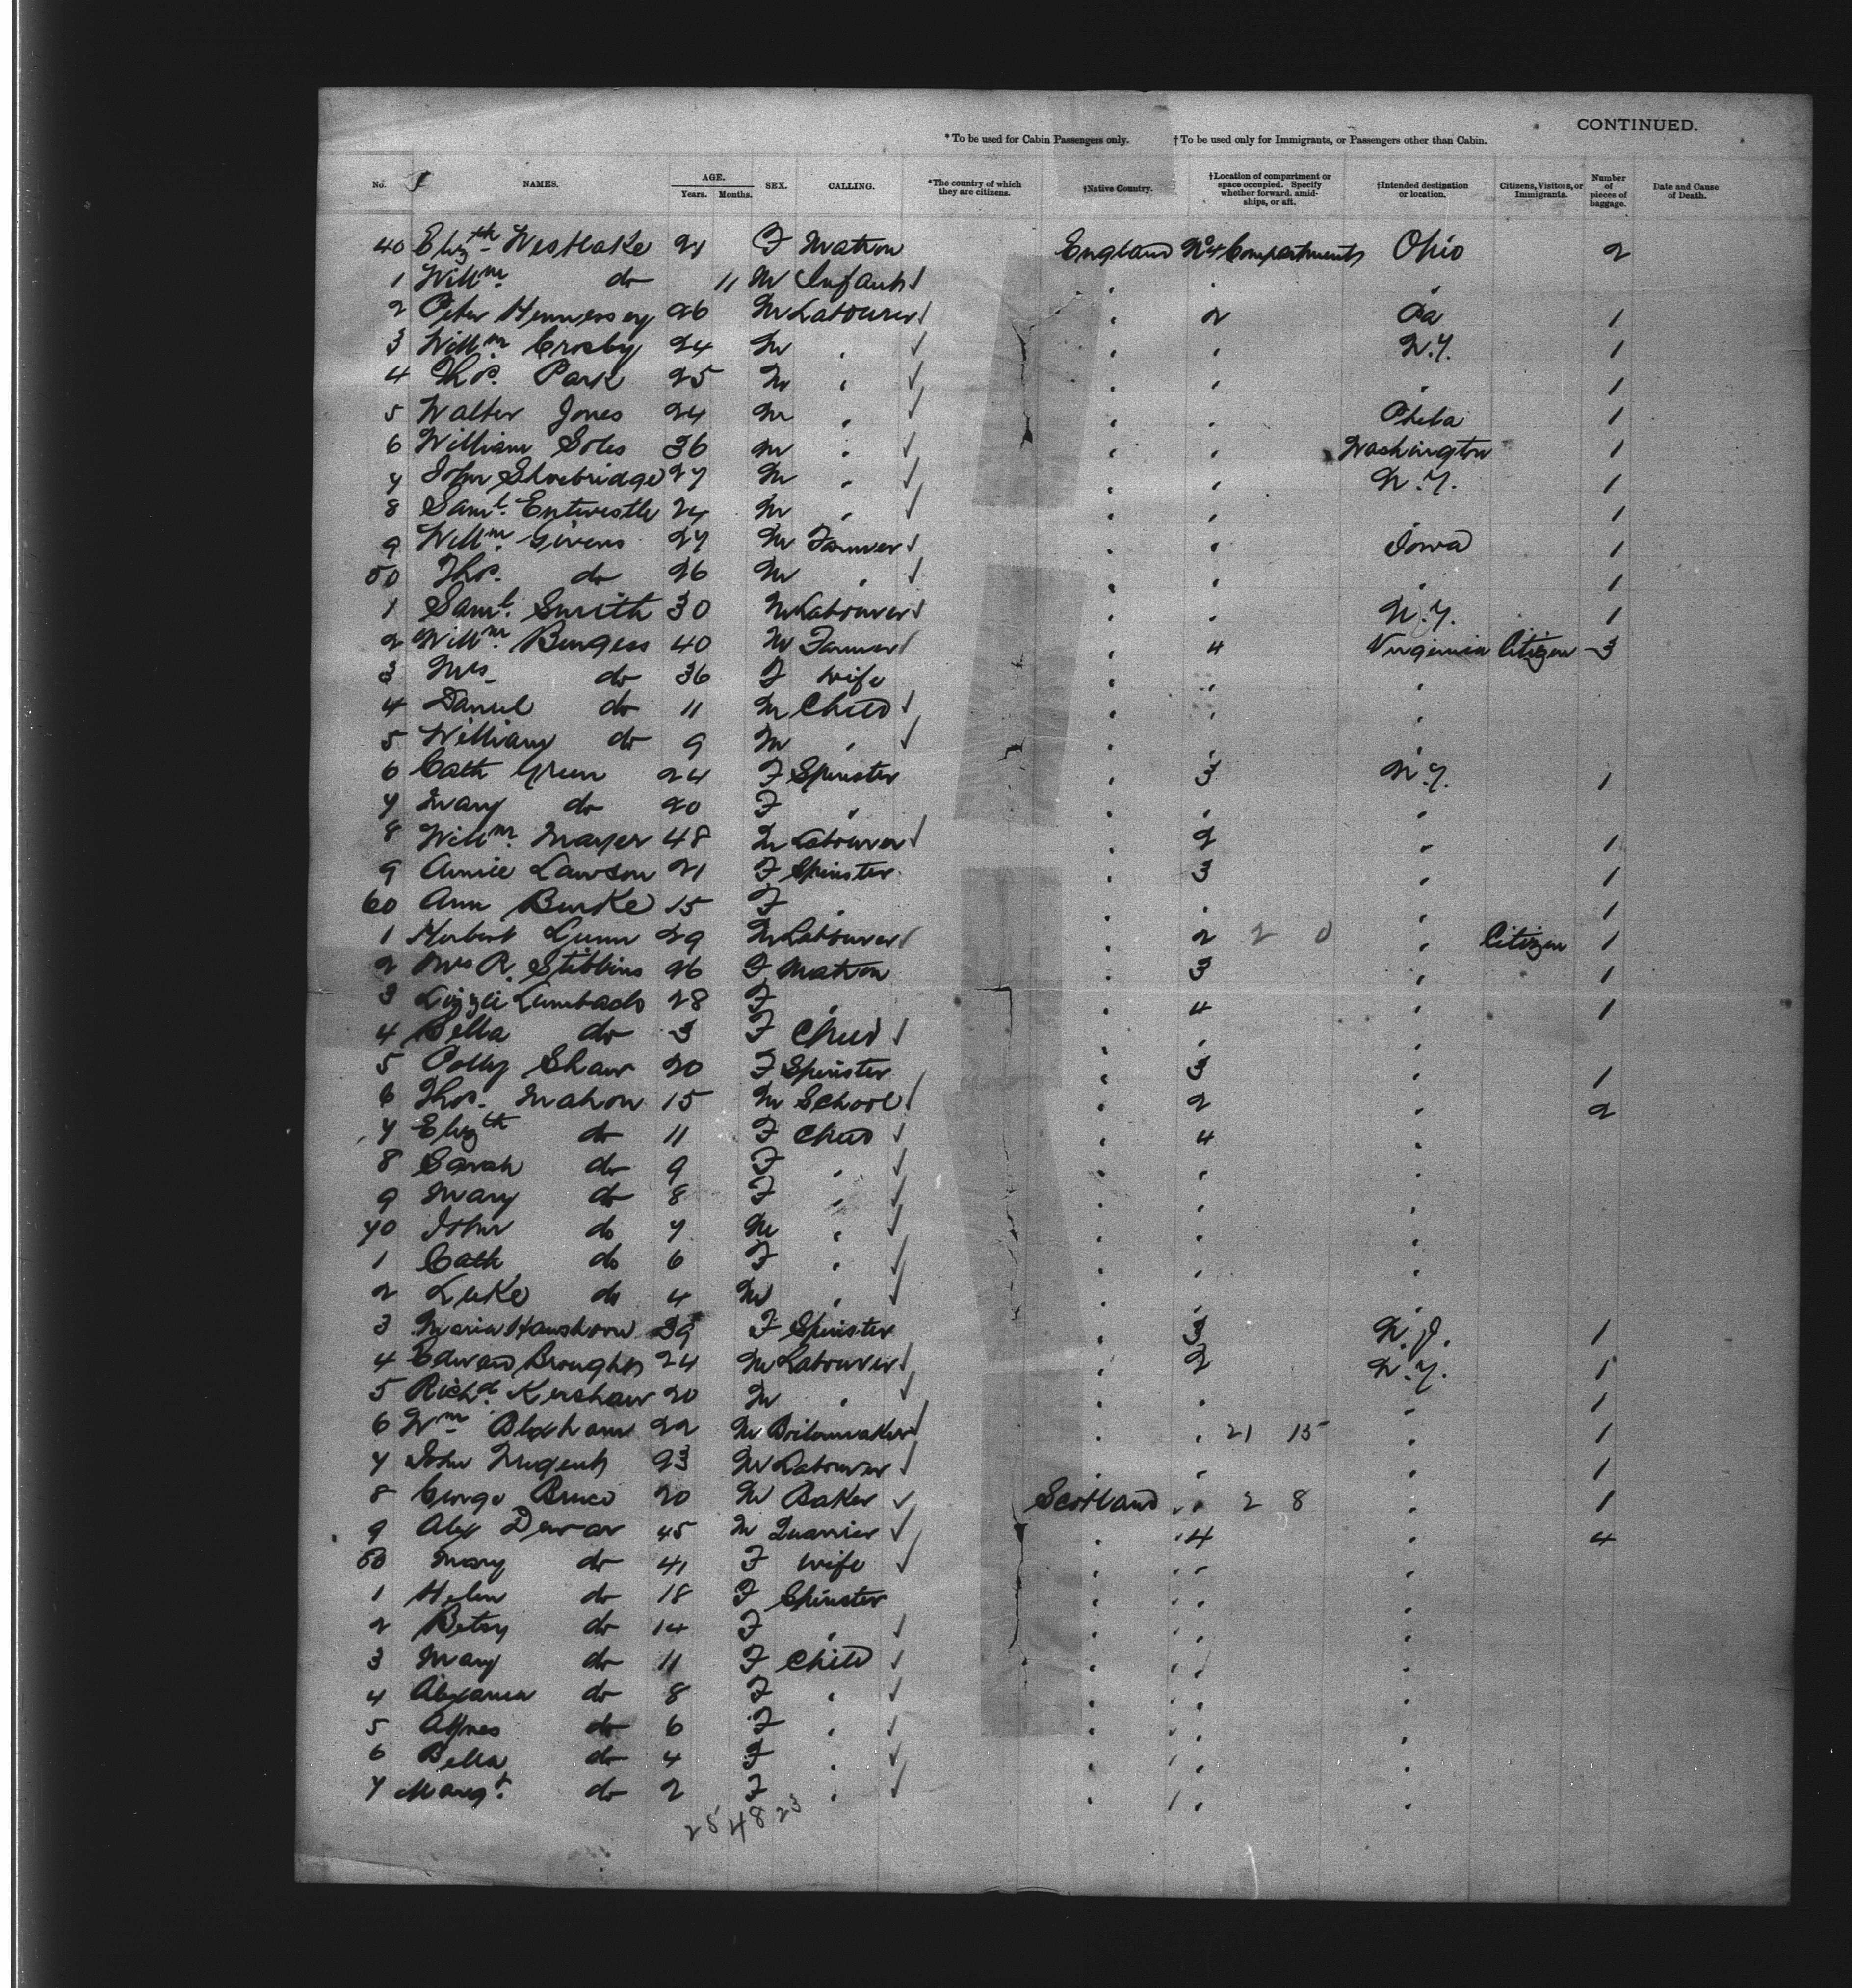 CONTINUED.
* To be used for Cabin Passengers only. † To be used only for Immigrants, or Passengers other than Cabin.
No. NAMES. AGE. Years. Months. SEX. CALLING. *The country of which they are citizens. †Native Country. †Location of compartment or space occupied. Specify whether forward, amidships, or aft. †Intended destination or location. Citizens, Visitors, or Immigrants. Number of pieces of baggage. Date and Cause of Death.
40 Elizth Westlake 21 F Matron England No 4 Compartment Ohio 2
1 Willm do 11 M Infant "
2 Peter Hennessey 26 M Labourer " 2 Pa 1
3 Willm Crosby 24 M " " " N.Y. 1
4 Thos. Park 25 M " " " " 1
5 Walter Jones 24 M " " " Phila 1
6 William Soles 36 M " " " Washington 1
7 John Shoebridge 27 M " " " N.Y. 1
8 Saml. Entwistle 24 M " " " " 1
9 Willm Givens 27 M Farmer " " Iowa 1
50 Thos. do 26 M " " " " 1
1 Saml. Smith 30 M Labourer " " N.Y. 1
2 Willm Burgess 40 M Farmer " 4 Virginia Citizen 3
3 Mrs do 36 F Wife " " "
4 Daniel do 11 M Child " " "
5 William do 9 M " " " "
6 Cath Green 24 F Spinster " 3 N.Y. 1
7 Mary do 20 F " " " "
8 Willm Mayer 48 M Labourer " 2 " 1
9 Annie Lawson 21 F Spinster " 3 " 1
60 Ann Burke 15 F " " " " 1
1 Herbert Gunn 29 M Labourer " 2 2 0 " Citizen 1
2 Mrs R. Stibbins 26 F Matron " 3 " 1
3 Lizzie 28 F " " 4 " 1
4 Bella do 3 F Child " " "
5 Polly Shaw 20 F Spinster " 3 " 1
6 Thos. Mahon 15 M School " 2 " 2
7 Elizth do 11 F Child " 4 "
8 Sarah do 9 F " " " "
9 Mary do 8 F " " " "
70 John do 7 M " " " "
1 Cath do 6 F " " " "
2 Luke do 4 M " " " "
3 Maria 39 F Spinster " 3 N.J. 1
4 Edward Broughton 24 M Labourer " 2 N.Y. 1
5 Richd. Kershaw 20 M " " " " 1
6 Wm Bloxham 22 M Boilermaker " " 21 15 " 1
7 John Nugent 23 M Labourer " " " 1
8 George Bruce 20 M Baker Scotland " " 2 8 " 1
9 Alex Dewar 45 M Quarrier " " 4 " 4
80 Mary do 41 F Wife " " " "
1 Helen do 18 F Spinster " " " "
2 Betsy do 14 F " " " " "
3 Mary do 11 F Child " " " "
4 do 8 F " " " " "
5 Agnes do 6 F " " " " "
6 Bella do 4 F " " " " "
7 Margt. do 2 F " " " " "
25 48 23